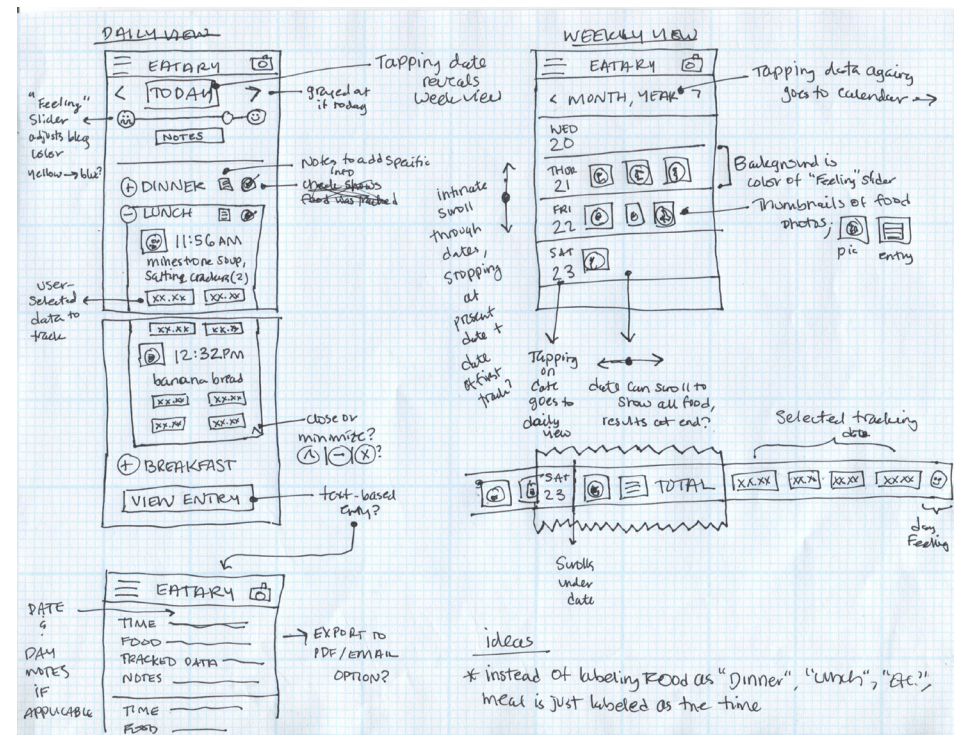 DAILY VIEW
EATARY
< TODAY >
"Feeling"
Slider
adjusts bkg
color
yellow → blue?
NOTES
Tapping date
reveals
week view
grayed out
if today
Notes to add specific
info
check shows
food was tracked
+ DINNER
- LUNCH
11:56 AM
minestrone soup,
Saltine crackers (2)
xx.xx xx.xx
user-
selected
data to
track
xx.xx xx.xx
12:32PM
banana bread
xx.xx xx.xx
xx.xx xx.xx
close or
minimize?
^ | - | x ?
+ BREAKFAST
VIEW ENTRY
text-based
entry?
EATARY
DATE
&
DAY
NOTES
IF
APPLICABLE
TIME
FOOD
TRACKED DATA
NOTES
TIME
FOOD
→ EXPORT TO
PDF/EMAIL
OPTION?
WEEKLY VIEW
EATARY
< MONTH, YEAR >
Tapping data again
goes to calendar →
WED
20
THUR
21
FRI
22
SAT
23
Background is
color of "Feeling" slider
Thumbnails of food
photos;
pic
entry
infinate
scroll
through
dates,
stopping
at
present
date +
date
of first
track?
Tapping
on
date
goes to
daily
view
date can scroll to
show all food,
results at end?
Selected tracking
data
SAT
23
TOTAL
xx.xx xx.xx xx.xx xx.xx
day
Feeling
Scrolls
under
date
ideas
* instead of labeling Food as "Dinner", "Lunch", "Etc.",
meal is just labeled as the time